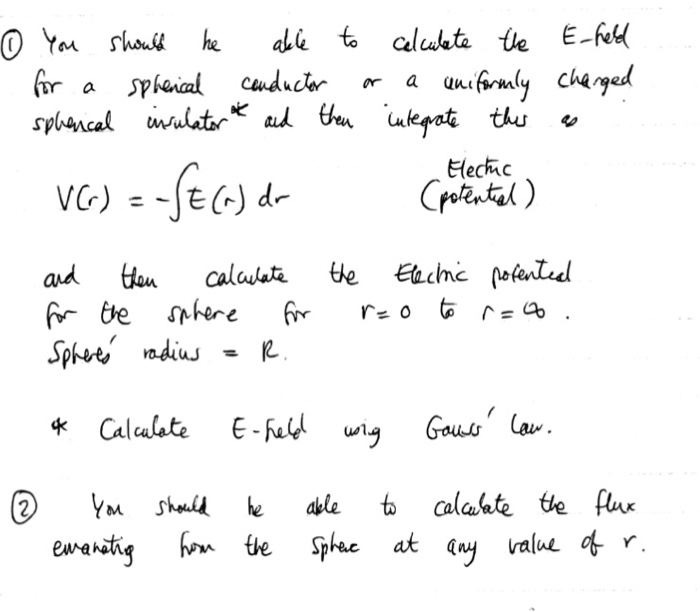 ① You should be able to calculate the E-field
for a spherical conductor or a uniformly charged
spherical insulator* and then integrate this as
V(r) = -∫E(r) dr
Electric
(potential)
and then calculate the Electric potential
for the sphere for r=0 to r=∞.
Spheres' radius = R.
* Calculate E-field using Gauss' Law.
② You should be able to calculate the flux
emanating from the sphere at any value of r.